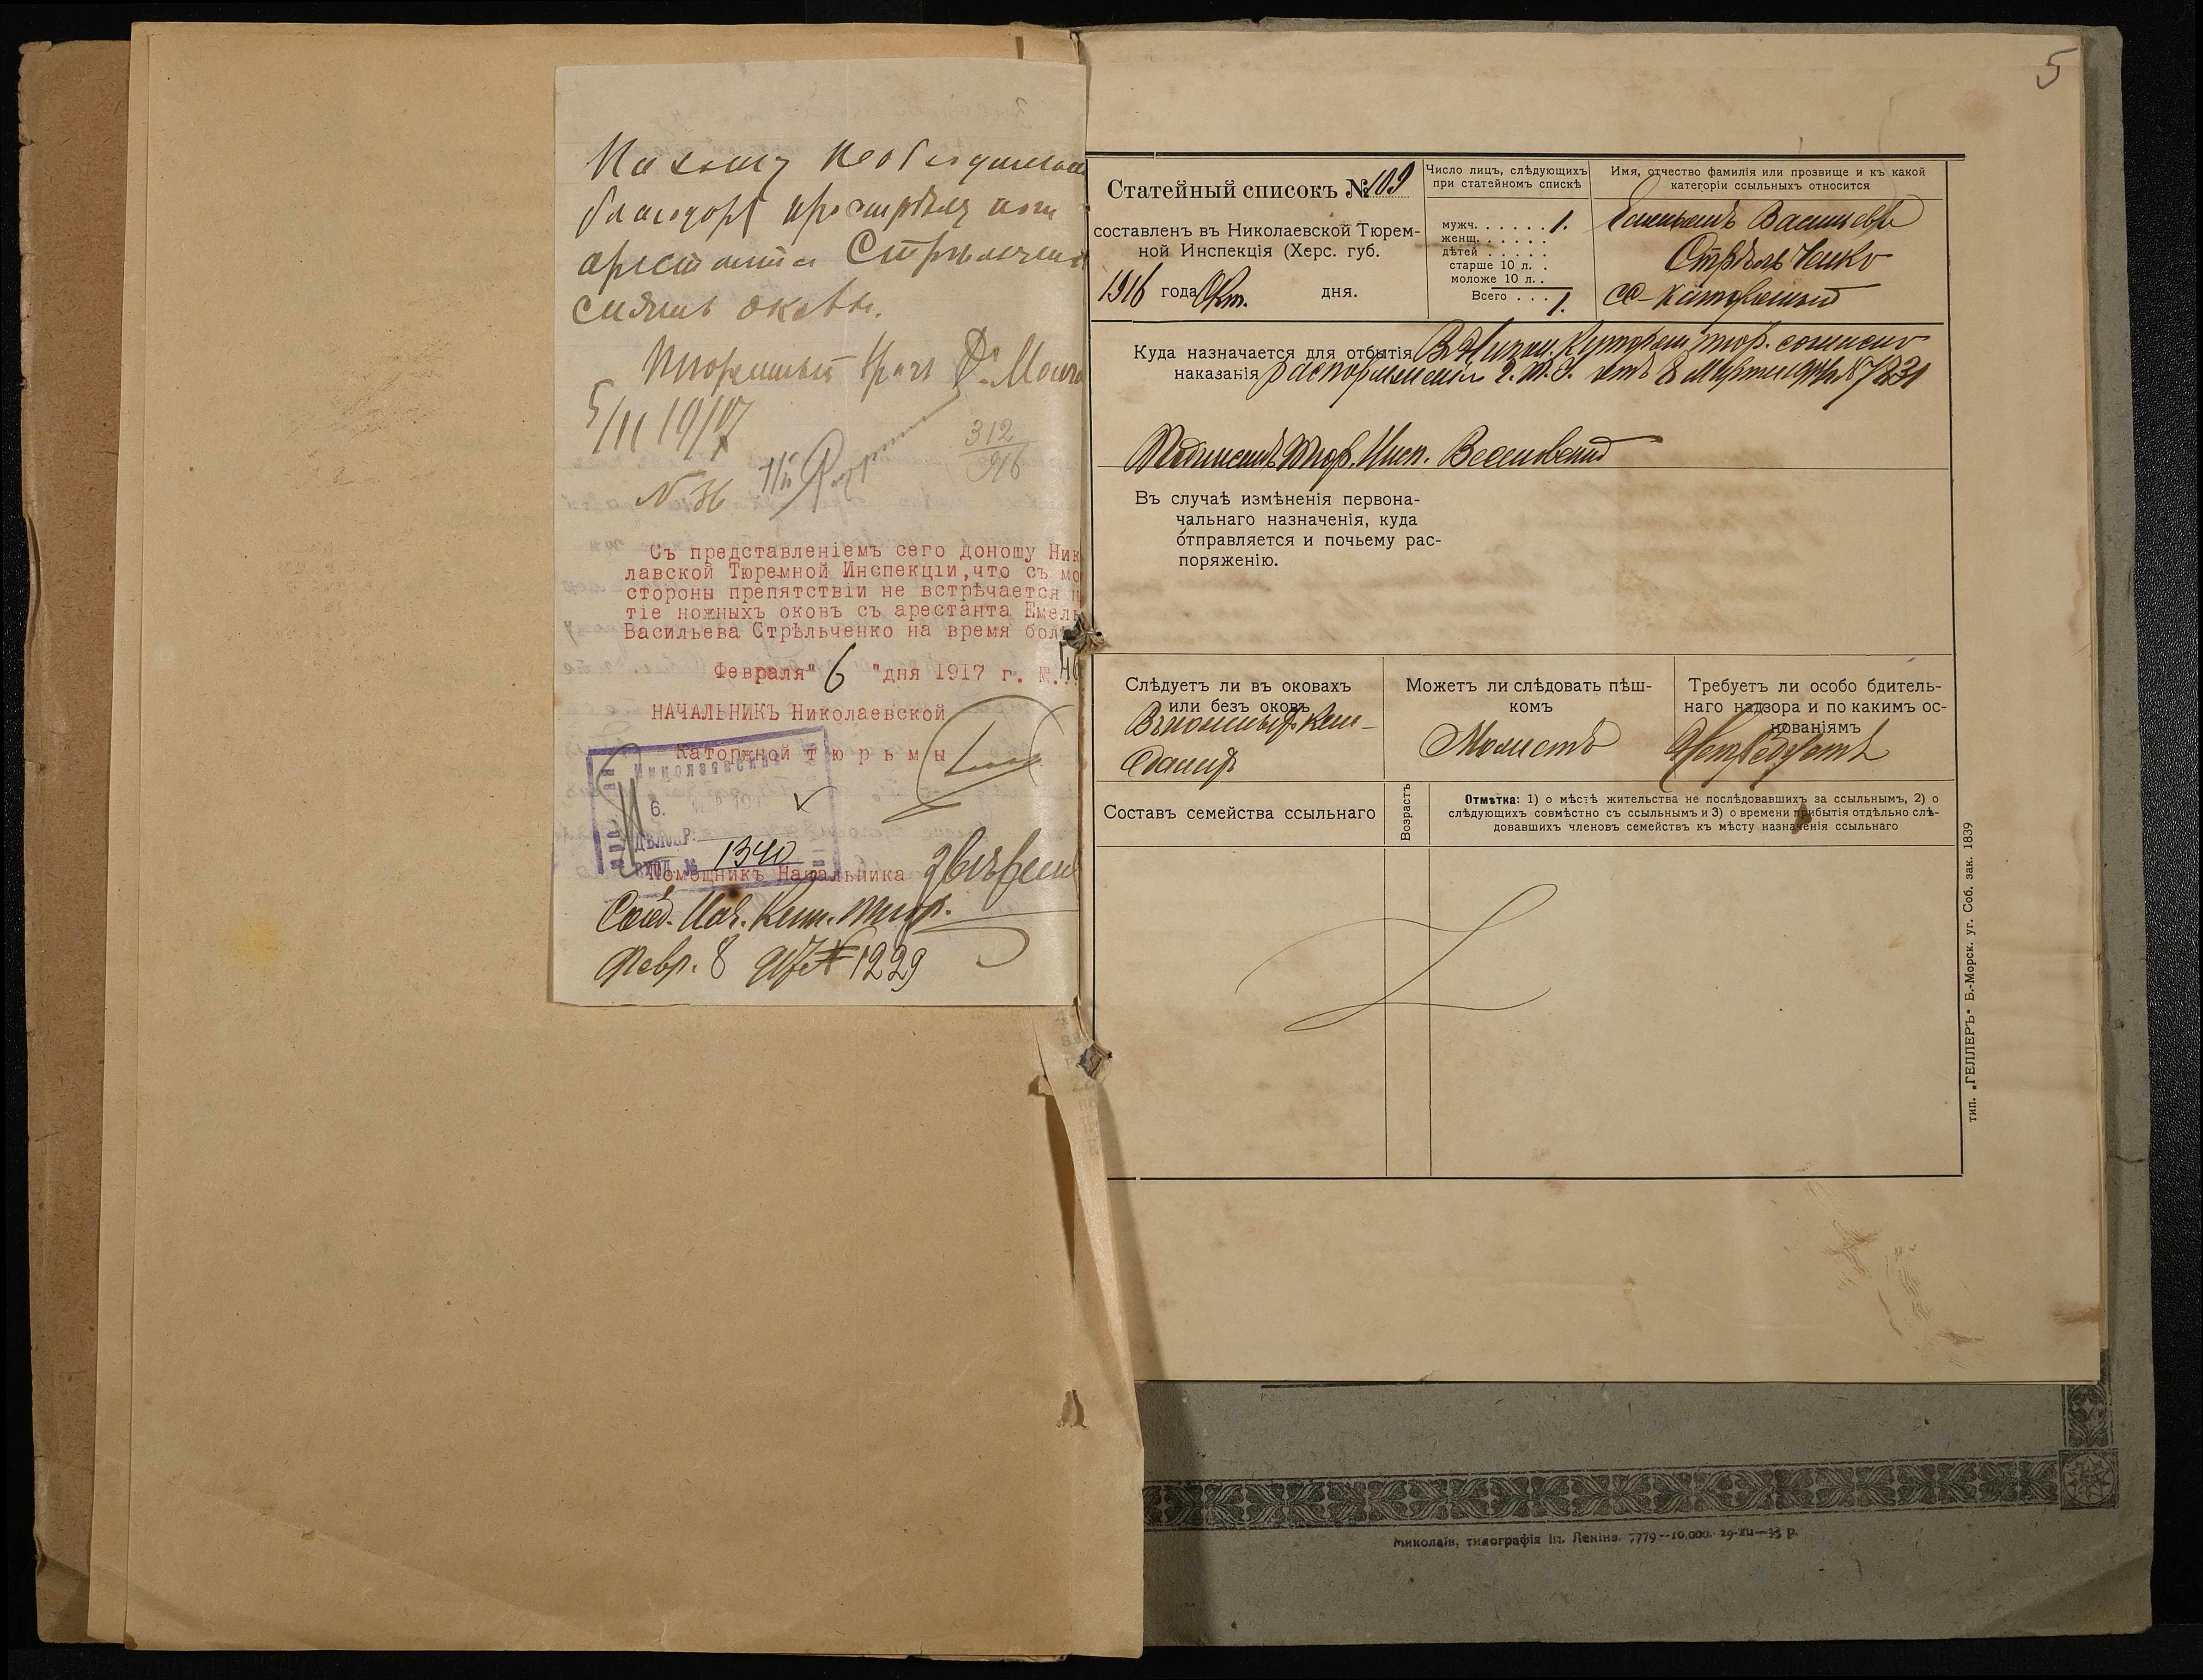 Нахожу необходимым
благодаря прострѣлу ноги
арестанта Стрельченко
снять оковы.
Тюремный врачъ Др.
5/II 1917
312
916
N 36
Съ представленіемъ сего доношу Ник
лавской Тюремной Инспекціи, что съ мо
стороны препятствіи не встрѣчается н
тіе ножныхъ оковъ съ арестанта Емель
Васильева Стрѣльченко на время бол
Февраля "6 "дня 1917 г. №.
НАЧАЛЬНИКЪ Николаевской
Каторжной т ю р ь м ы
Николаевская
6.
ДѢЛОПР.
ВХОД. № 1340
Помощникъ Начальника
Сооб. Нач. Кат. тюр.
Февр. 8 917 г. № 1229
5
Статейный списокъ № 109
составленъ въ Николаевской Тюрем-
ной Инспекція (Херс. губ.
1916 года Окт. дня.
Число лицъ, слѣдующихъ
при статейномъ спискѣ
мужч. . . . . . 1.
женщ. . . . . .
дѣтей . . . . .
старше 10 л. .
моложе 10 л. .
Всего . . . 1.
Имя, отчество фамилія или прозвище и къ какой
категоріи ссыльныхъ относится
Емельянъ Васильевъ
Стрѣльченко
сс-каторжный
Куда назначается для отбытія
наказанія
В Никол. Каторжн. тюр. согласно
распоряженія Г. Т. У. отъ 8 Марта 916 г. № 7831
Подписалъ Тюр. Инсп.
Въ случаѣ измѣненія первона-
чальнаго назначенія, куда
отправляется и почьему рас-
поряженію.
Слѣдуетъ ли въ оковахъ
или безъ оковъ
Въ ножныхъ кан-
далахъ
Можетъ ли слѣдовать пѣш-
комъ
Можетъ
Требуетъ ли особо бдитель-
наго надзора и по какимъ ос-
нованіямъ
Нетребуетъ
Составъ семейства ссыльнаго
Возрастъ
Отмѣтка: 1) о мѣстѣ жительства не послѣдовавшихъ за ссыльнымъ, 2) о
слѣдующихъ совмѣстно съ ссыльнымъ и 3) о времени прибытія отдѣльно слѣ-
довавшихъ членовъ семействъ къ мѣсту назначенія ссыльнаго
тип. „ГЕЛЛЕРЪ" Б.-Морск. уг. Соб. зак. 1839
Миколаїв, типографія ім. Леніна. 7779--10.000. 29-XII—33 р.